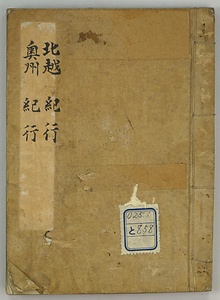 北越 紀行
奥州 紀行
と858